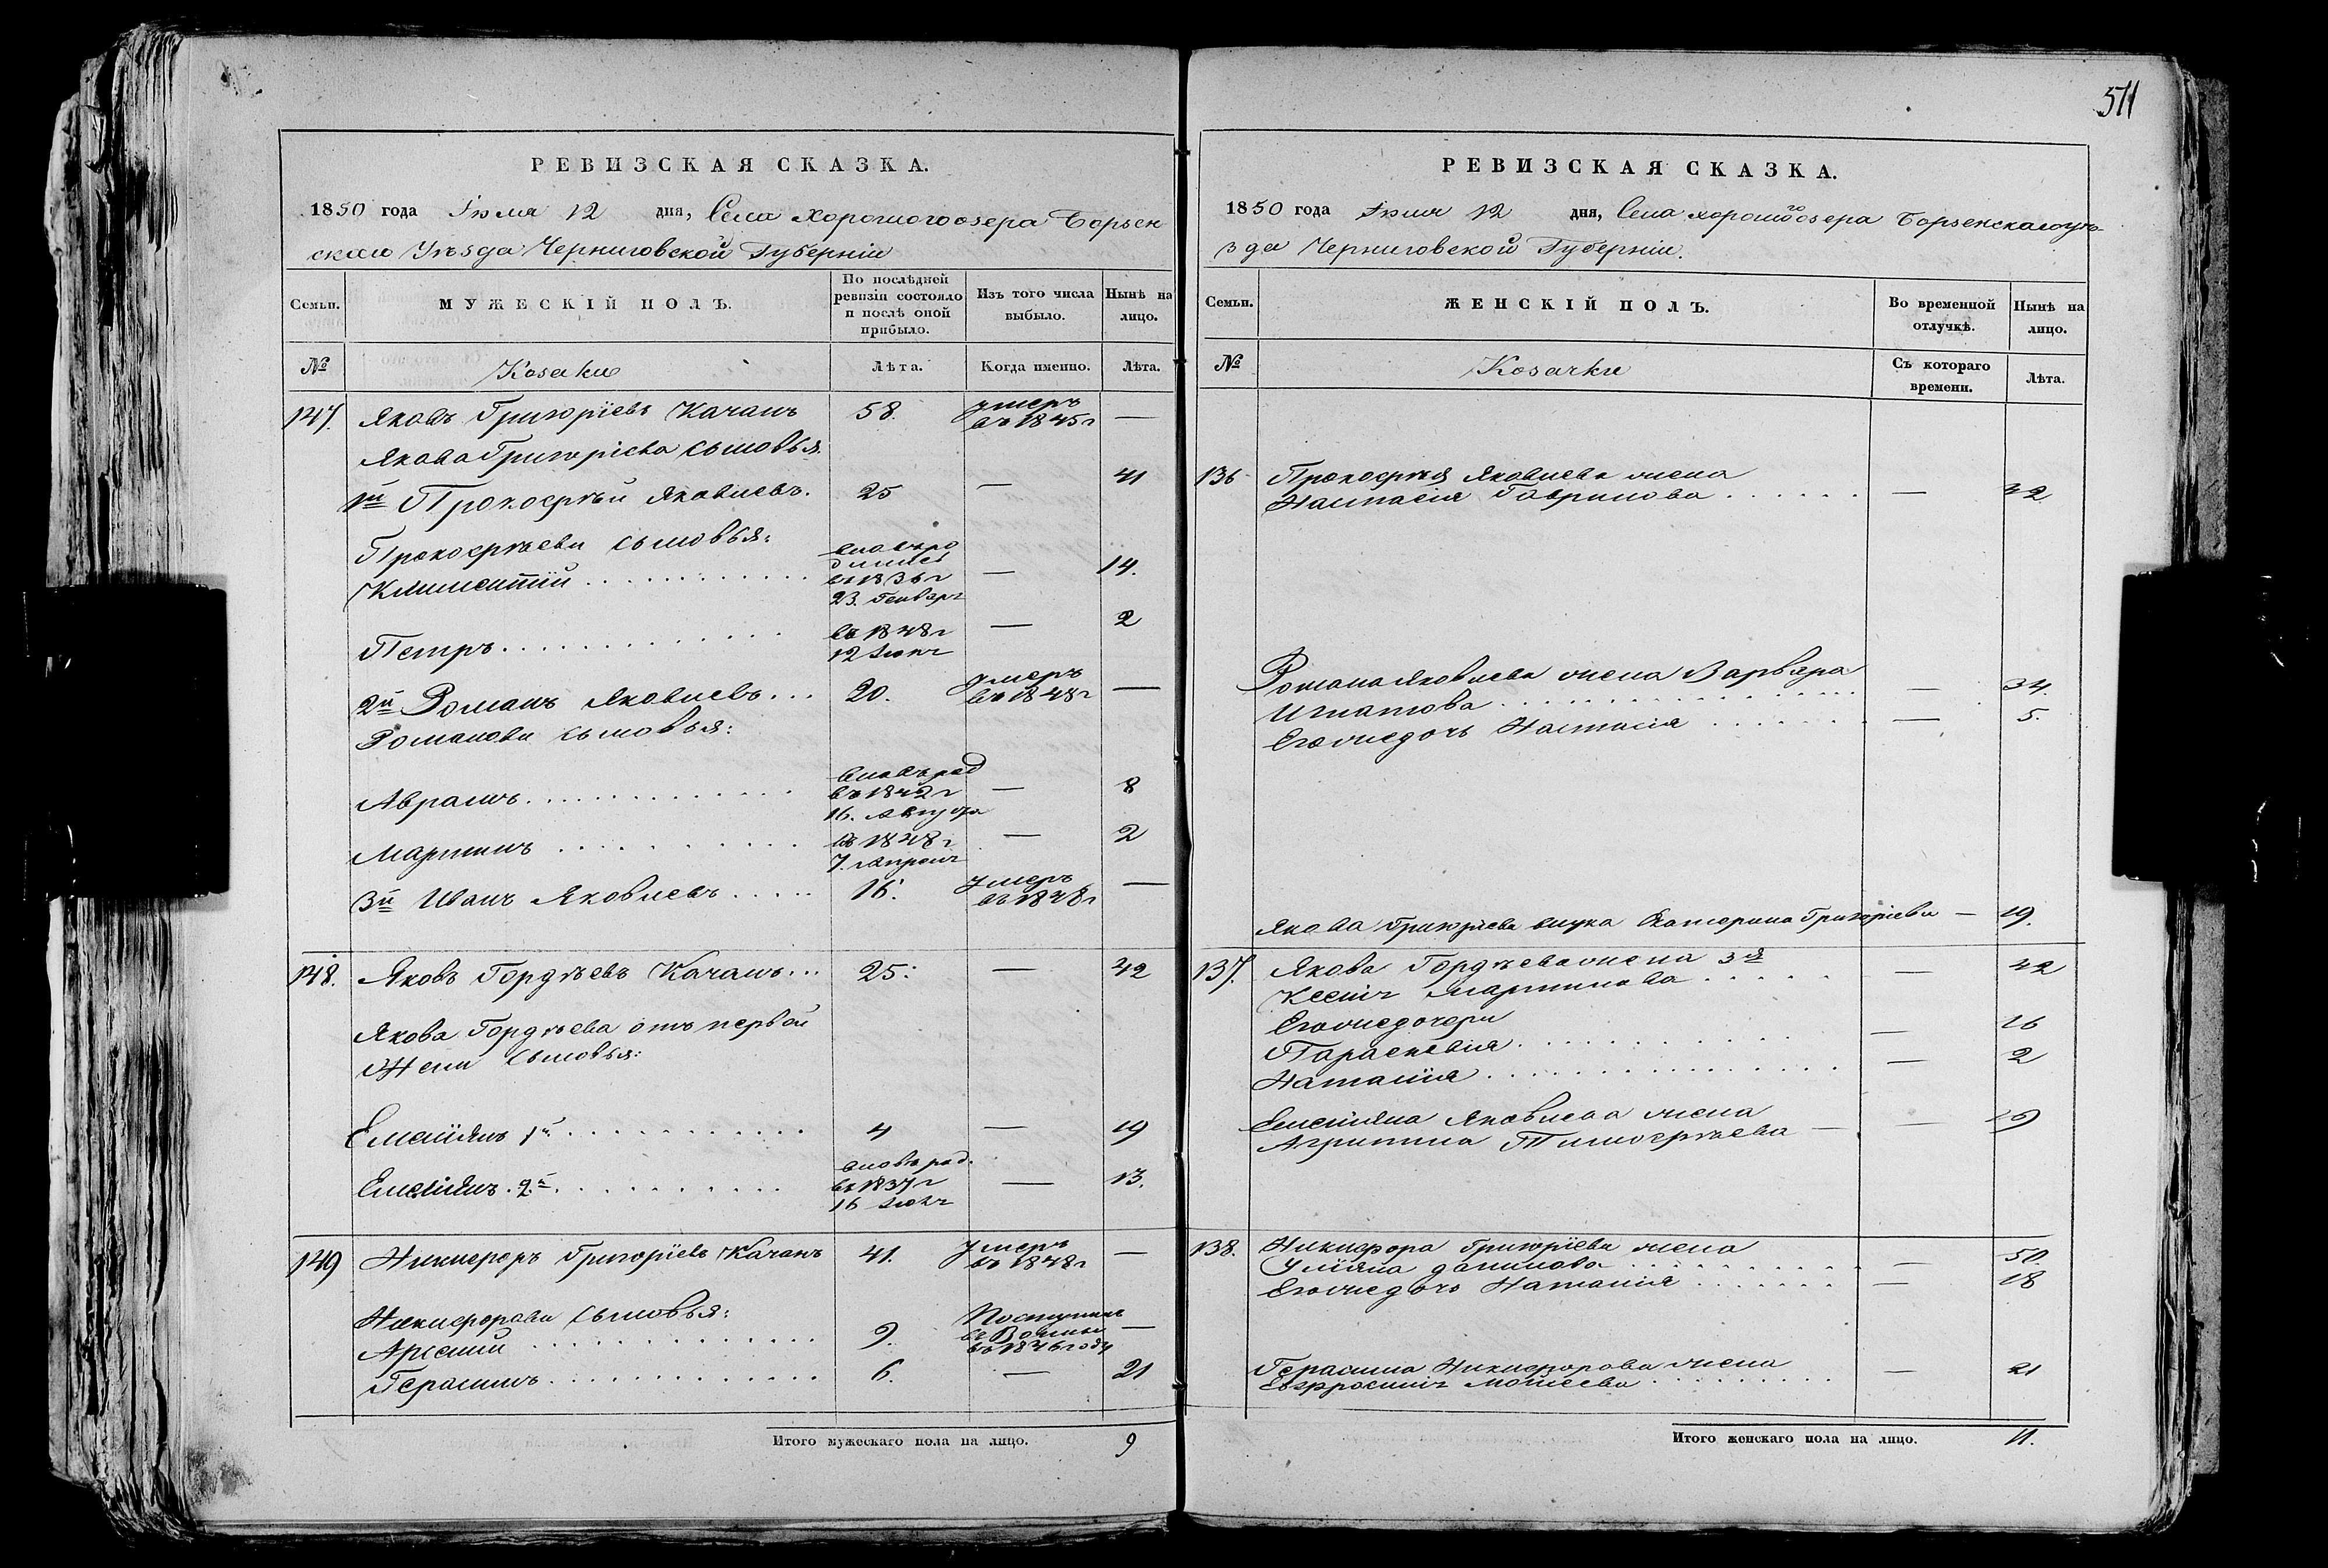 РЕВИЗСКАЯ СКАЗКА.
1850 года Іюля 12 дня, Села Хорошогоозера Борзен
скаго Уѣзда Черниговской Губерніи
Семьи.
МУЖЕСКІЙ ПОЛЪ.
По послѣдней ревизіи состояло и послѣ оной прибыло.
Изъ того числа выбыло.
Нынѣ на лицо.
№
Козаки
Лѣта.
Когда именно.
Лѣта.
147. Яковъ Григоріевъ Качанъ 58. умеръ въ 1845г —
Якова Григоріева сыновья
1й Прокофѣй Яковлевъ. 25 — 41
Прокофѣеви сыновья:
Климентій . . . . вновь родился въ 1836г 23. Генваря — 14.
Петръ . . . . въ 1848г 12 Іюня — 2
2й Романъ Яковлевъ... 20. умеръ въ 1848г —
Романови сыновья:
Аврамъ . . . . вновь род въ 1842г 16. Августа — 8
Мартинъ . . . . въ 1848г 7. Апреля — 2
3й Иванъ Яковлевъ . . . . 16. умеръ въ 1848г —
148. Яковъ Гордѣевъ Качанъ... 25: — 42
Якова Гордѣева отъ первой
Жени сыновья:
Емеліянъ 1й . . . . 4 — 19
Емеліянъ 2й . . . . вновь род. въ 1837г 16 Іюля — 13.
149 Никифоръ Григоріевъ Качанъ 41. умеръ въ 1848г —
Никифорови сыновья:
Арсеній . . . . 9. Поступилъ въ 1846 году —
Герасимъ . . . . 6. — 21
Итого мужескаго пола на лицо. 9
511
РЕВИЗСКАЯ СКАЗКА.
1850 года Іюля 12 дня, Села Хорошогоозера Борзенскагоуѣ-
зда Черниговской Губерніи.
Семьи.
ЖЕНСКІЙ ПОЛЪ.
Во временной отлучкѣ.
Нынѣ на лицо.
№
Козачки
Съ котораго времени.
Лѣта.
136 Прокофѣя Яковлева жена
Настасія Гаврилова . . . . — 42
Романа Яковлева жена Варвара
Игнатова . . . . — 34.
Егожедочь Настасія . . . . — 5.
Якова Григоріева внука Екатерина Григоріева — 19.
137. Якова Гордѣева жена 3я
Ксенія Мартинова . . . . — 42
Егожедочери
Параскевія . . . . — 16
Наталія . . . . — 2
Емеліяна Яковлева жена
Агрипина Тимофѣева — — 19
138. Никифора Григоріева жена
Уліяна Данилова . . . . — 50.
Егожедочь Наталія . . . . — 18
Герасима Никифорова жена
Евфросинія Мойсеева . . . . — 21
Итого женскаго пола на лицо. 11.